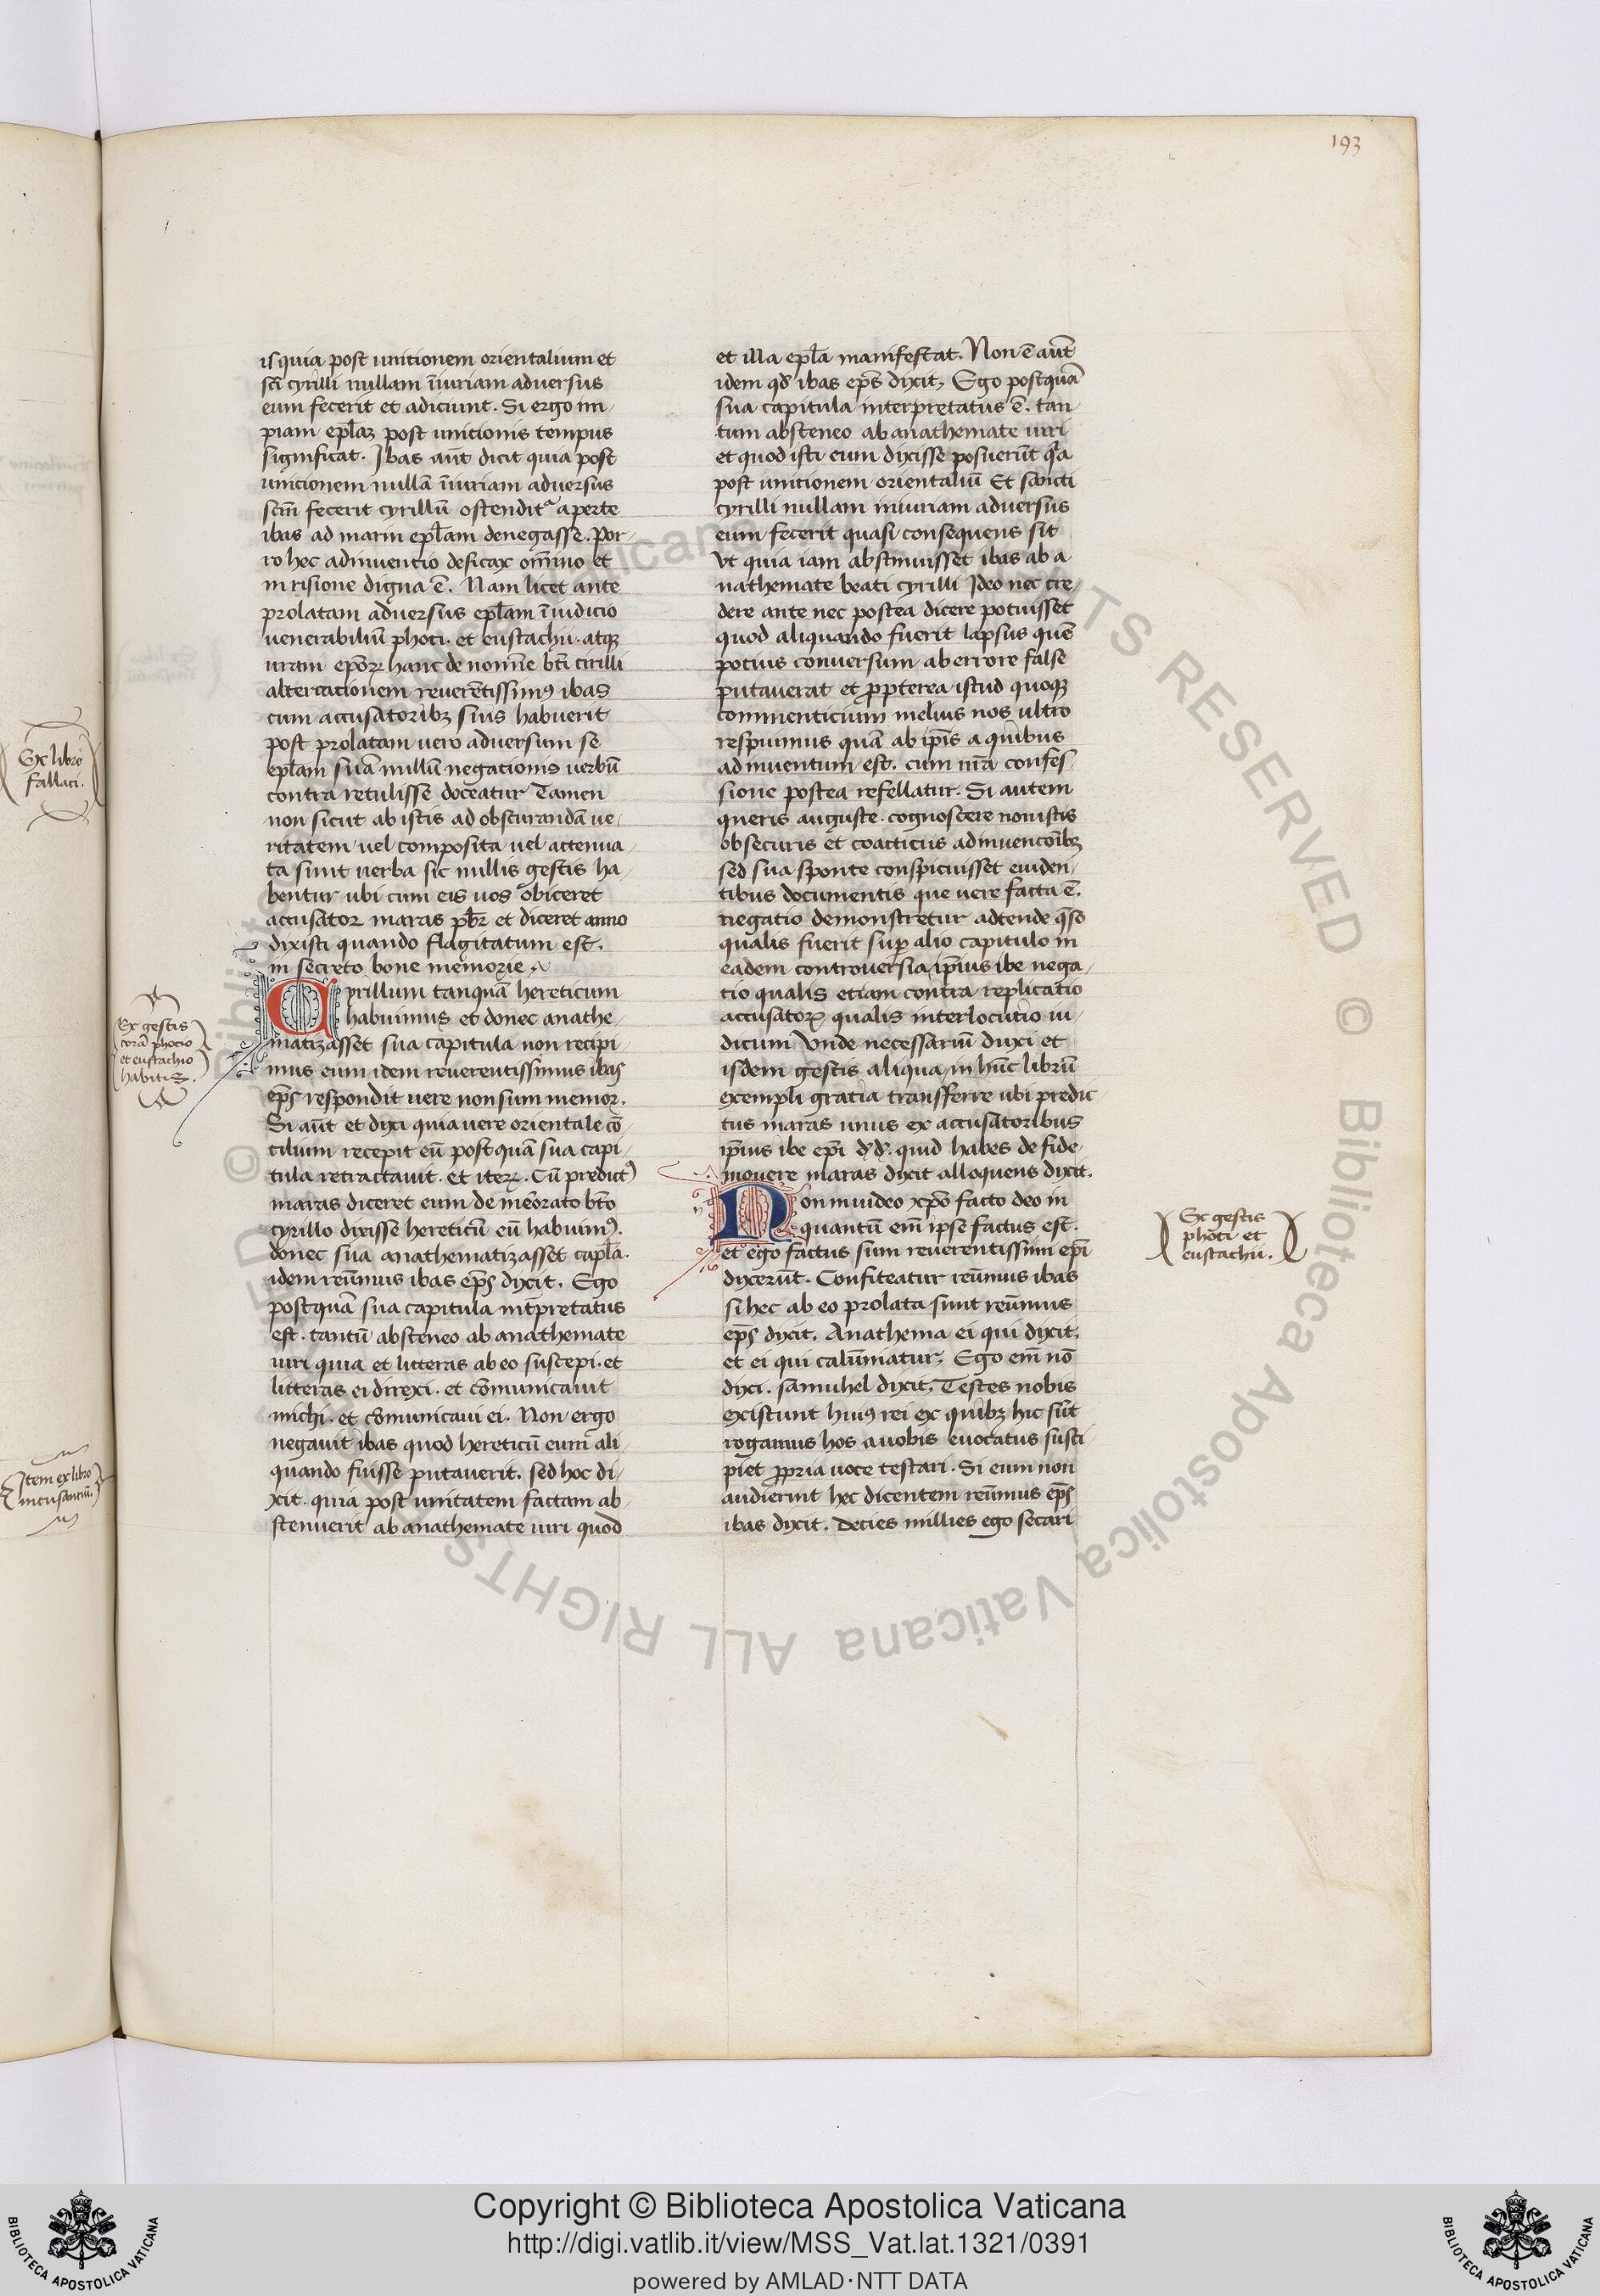 193
is quia post unitionem orientalium et
sc̄i cyrilli nullam īiuriam adversus
eum fecerit et adiciunt. Si ergo im
piam epl̄aꝫ post unitionis tempus
significat. Ibas aūt dicit quia post
unicionem nullā īiuriam adversus
scm̄ fecerit cyrillū ostenditᷣ aperte
ibas ad marin epl̄am denegasse. Por
ro hec adinventio deficax om̄ino et
in risione digna ē. Nam licet ante
prolatam adversus epl̄am īiudicio
venerabiliū photi. et eustachii. atqꝫ
urani ep̄oꝝ hanc de nomīe bt̄i cirilli
altercationem reverētissimꝰ ibas
cum accusatoribꝫ suis habuerit
post prolatam vero adversum se
epl̄am suā nullū negacionis verbū
contra retulisse doceatur Tamen
non sicut ab istis ad obscurandā ve
ritatem vel composita vel attenua
ta sunt verba sic nullis gestis ha
bentur ubi cum eis vos obiceret
accusator maras pb̄r et diceret anno
dixisti quando flagitatum est.
in secreto bone memorie
Cyrillum tanquā hereticum
habuimus et donec anathe
matizasset sua capitula non recipi
mus eum idem reverentissimus ibas
ep̄s respondit vere non sum memor.
Si aūt et dyxi quia vere orientale cō
cilium recepit eū postquā sua capi
tula retractavit. et iteꝝ. Cū predictꝰ
maras diceret eum de mēorato bt̄o
cyrillo dixisse hereticū eū habuimꝰ.
donec sua anathematizasset capl̄a.
idem reūmus ibas ep̄s dyxit. Ego
postquā sua capitula int̄pretatus
est. tantū absteneo ab anathemate
viri quia et litteras ab eo suscepi. et
litteras ei direxi. et cōmunicavit
michi. et cōmunicavi ei. Non ergo
negavit ibas quod hereticū eum ali
quando fuisse putaverit. sed hoc di
xit. quia post unitatem factam ab
stenuerit ab anathemate viri quod
et illa epl̄a manifestat. Non ē aūt
idem qd̄ ibas ep̄s dyxit, Ego postquā
sua capitula interpretatus ē. tan
tum absteneo ab anathemate viri
et quod isti eum dyxisse posuerūt qᷓa
post unitionem orientaliū Et sancti
cyrilli nullam iniuriam adversus
eum fecerit quasi consequens sit
vt quia iam abstinuisset ibas ab a
nathemate beati cyrilli Ideo nec cre
dere ante nec postea dicere potuisset
quod aliquando fuerit lapsus quē
potius conversum ab errore false
putaverat et ꝓpterea istud quoqꝫ
commenticium melius nos ultro
respuimus quā ab ip̄is a quibus
adinventum est. cum nr̄a confes
sione postea refellatur. Si autem
queris auguste. cognoscere non istis
obsecuris et coacticiis adinvencōibꝫ
sed sua sponte conspicuisset eviden
tibus documentis que vere facta ē.
negatio demonstretur adtende q̄so
qualis fuerit suꝑ alio capitulo in
eadem controversia ip̄ius ibe nega
tio qualis etiam contra replicatio
accusatoꝝ qualis interlocutio iu
dicum Vnde necessariū duxi et
isdem gestis aliqua in hūc librū
exempli gratia transferre ubi predic
tus maras unus ex accusatoribus
ip̄ius ibe ep̄i d. d. quid habes de fide
movere maras dyxit alloquens dyxit.
Non invideo xp̄o facto deo in
quantū em̄ ipse factus est.
et ego factus sum reverentissimi ep̄i
dyxerūt. Confiteatur reūmus ibas
si hec ab eo prolata sunt reūmus
ep̄s dyxit. Anathema ei qui dyxit.
et ei qui calūmiatur, Ego em̄ nō
dyxi. samuhel dyxit, Testes nobis
existunt huiꝰ rei ex quibꝫ hic sūt
rogamus hos a vobis evocatus susci
piet ꝓpria voce testari. Si eum non
audierint hec dicentem reūmus ep̄s
ibas dyxit. Decies millies ego secari
Ex libro
fallaci.
Ex gestis
corā photio
et eustachio
habitis.
Item ex libro
incusantiū.
Ex gestis
photi et
eustachii.
© Biblioteca Apostolica Vaticana ALL RIGHTS RESERVED
Copyright © Biblioteca Apostolica Vaticana
http://digi.vatlib.it/view/MSS_Vat.lat.1321/0391
powered by AMLAD·NTT DATA
BIBLIOTECA APOSTOLICA VATICANA
BIBLIOTECA APOSTOLICA VATICANA